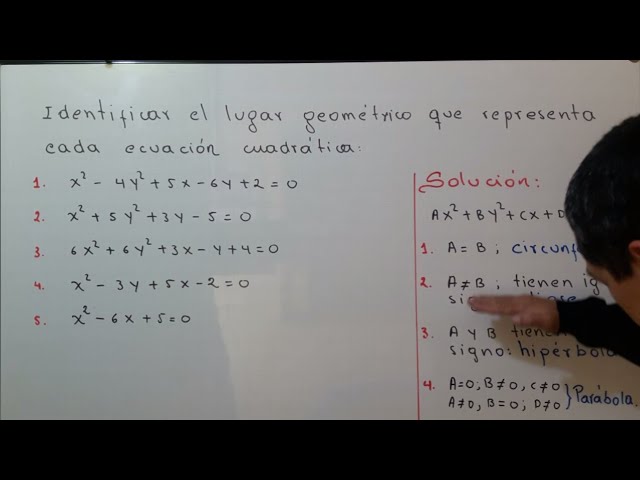 Identificar el lugar geométrico que representa
cada ecuación cuadrática:
1. x² - 4y² + 5x - 6y + 2 = 0
2. x² + 5y² + 3y - 5 = 0
3. 6x² + 6y² + 3x - y + 4 = 0
4. x² - 3y + 5x - 2 = 0
5. x² - 6x + 5 = 0
Solución:
Ax² + By² + Cx + D
1. A = B ;
2. A ≠ B ; tienen
3. A y B tienen
signo: hipérbola
4. A=0; B≠0, C≠0 } Parábola.
A≠0, B=0; D≠0